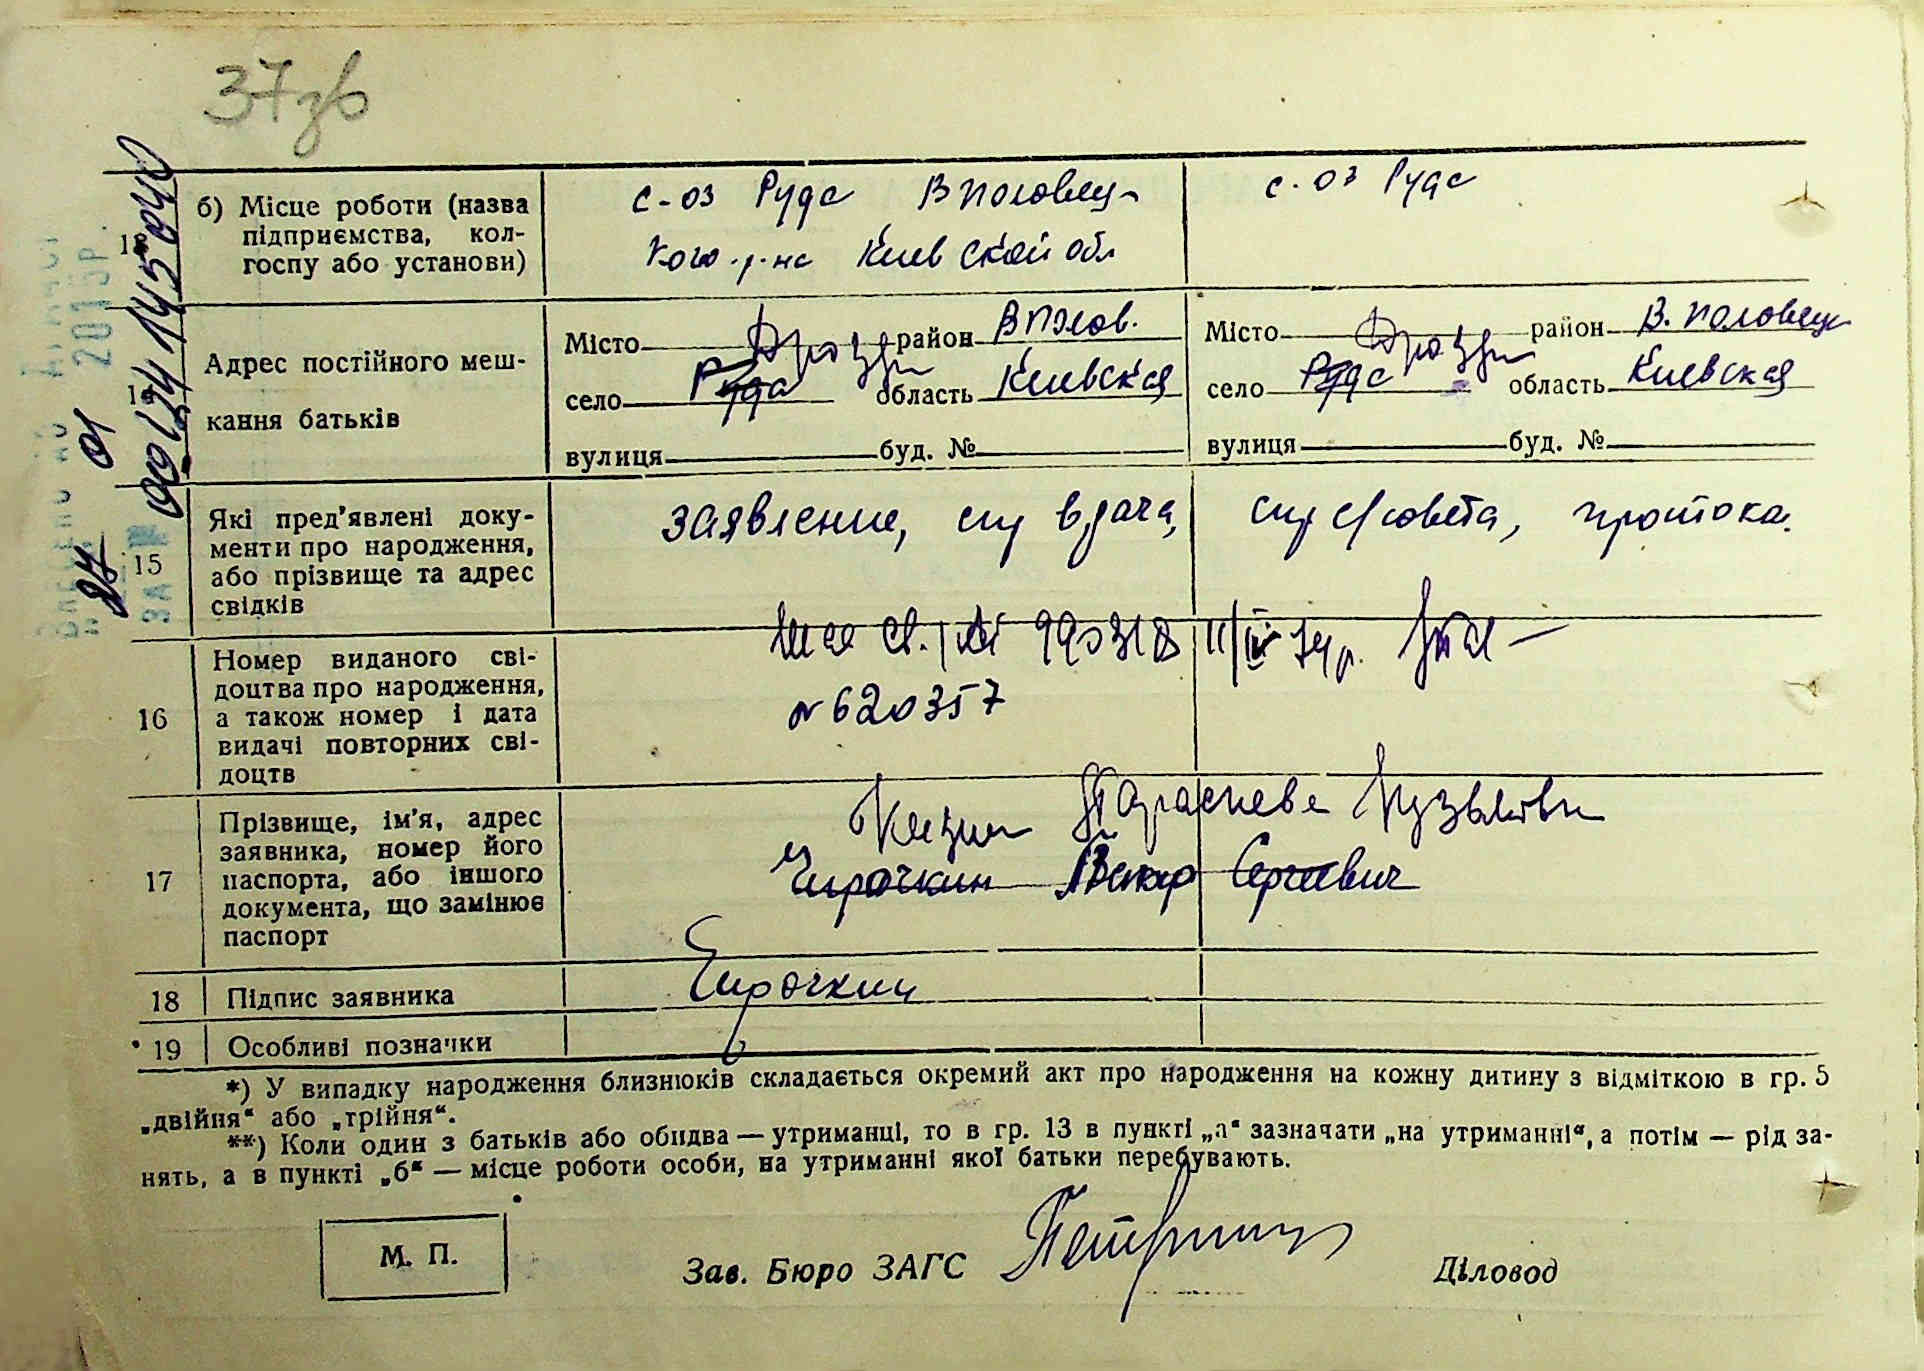 37зв
б) Місце роботи (назва
підприємства, кол-
госпу або установи)
с-оз Руда В Половец-
кого р-на Киевской обл
с-оз Руда
Адрес постійного меш-
кання батьків
Місто район В Полов.
Дрозди
село Руда область Киевская
вулиця буд. №
Місто район В. Половец
Дрозди
село Руда область Киевская
вулиця буд. №
15
Які пред'явлені доку-
менти про народження,
або прізвище та адрес
свідків
заявление, спр врача, спр с/совета, протока.
16
Номер виданого сві-
доцтва про народження,
а також номер і дата
видачі повторних сві-
доцтв
св. 990318 11/IV 74р.
№620357
17
Прізвище, ім'я, адрес
заявника, номер його
паспорта, або іншого
документа, що замінює
паспорт
Чирочкин Сергеевич
18
Підпис заявника
Чирочкин
19
Особливі позначки
*) У випадку народження близнюків складається окремий акт про народження на кожну дитину з відміткою в гр. 5
„двійня“ або „трійня“.
**) Коли один з батьків або обидва — утриманці, то в гр. 13 в пункті „а“ зазначати „на утриманні“, а потім — рід за-
нять, а в пункті „б“ — місце роботи особи, на утриманні якої батьки перебувають.
М. П.
Зав. Бюро ЗАГС
Діловод
27 01 2015р.
00124145040